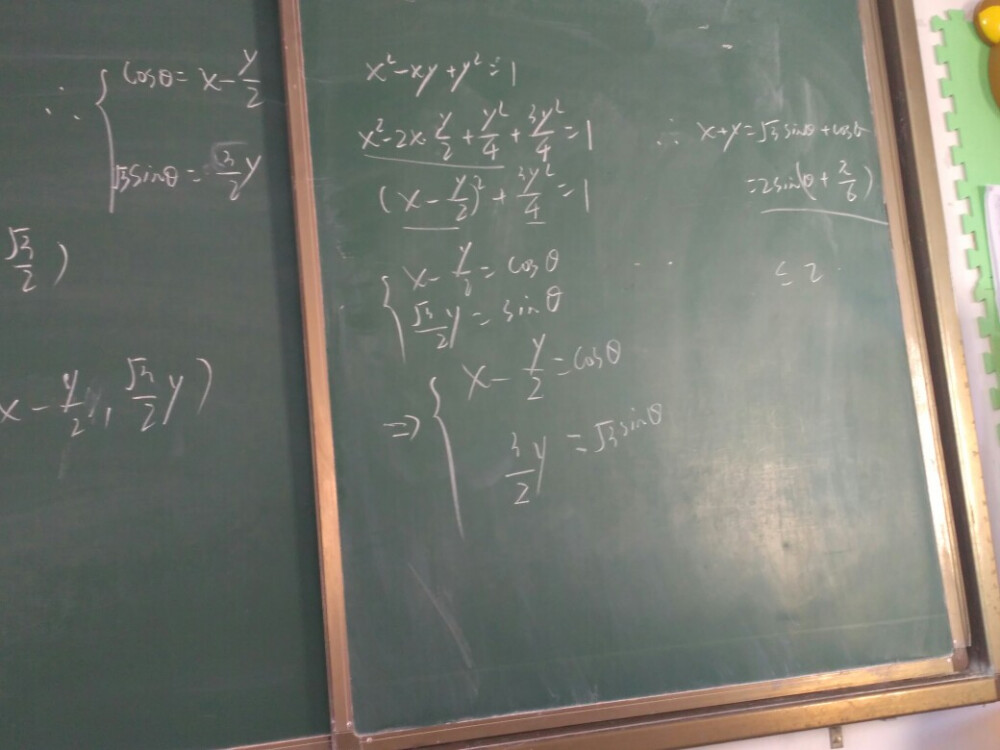 ∴ { cosθ = x - y/2
√3 sinθ = 3/2 y
√3/2 )
x - y/2, √3/2 y )
x² - xy + y² = 1
x² - 2x·y/2 + y²/4 + 3y²/4 = 1
(x - y/2)² + 3y²/4 = 1
{ x - y/2 = cosθ
√3/2 y = sinθ
⇒ { x - y/2 = cosθ
3/2 y = √3 sinθ
∴ x + y = √3 sinθ + cosθ
= 2sin(θ + π/6)
≤ 2